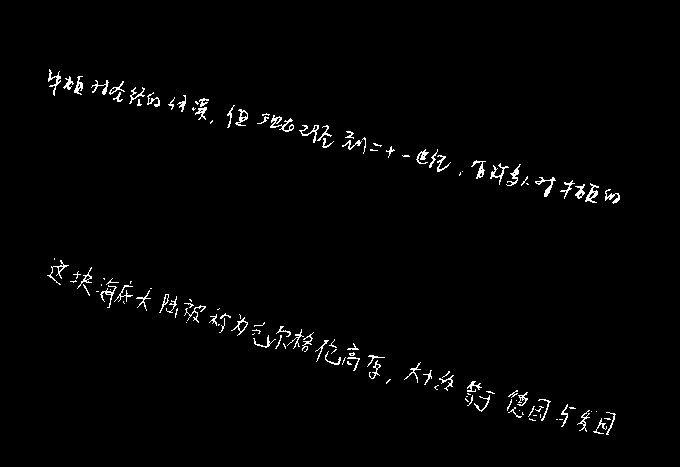 牛顿对圣经的体贯,但现在已经到二十一世纪,有许多人对牛顿的
这块海底大陆被称为毛尔格伦高原,大小丝紧于德国与美国